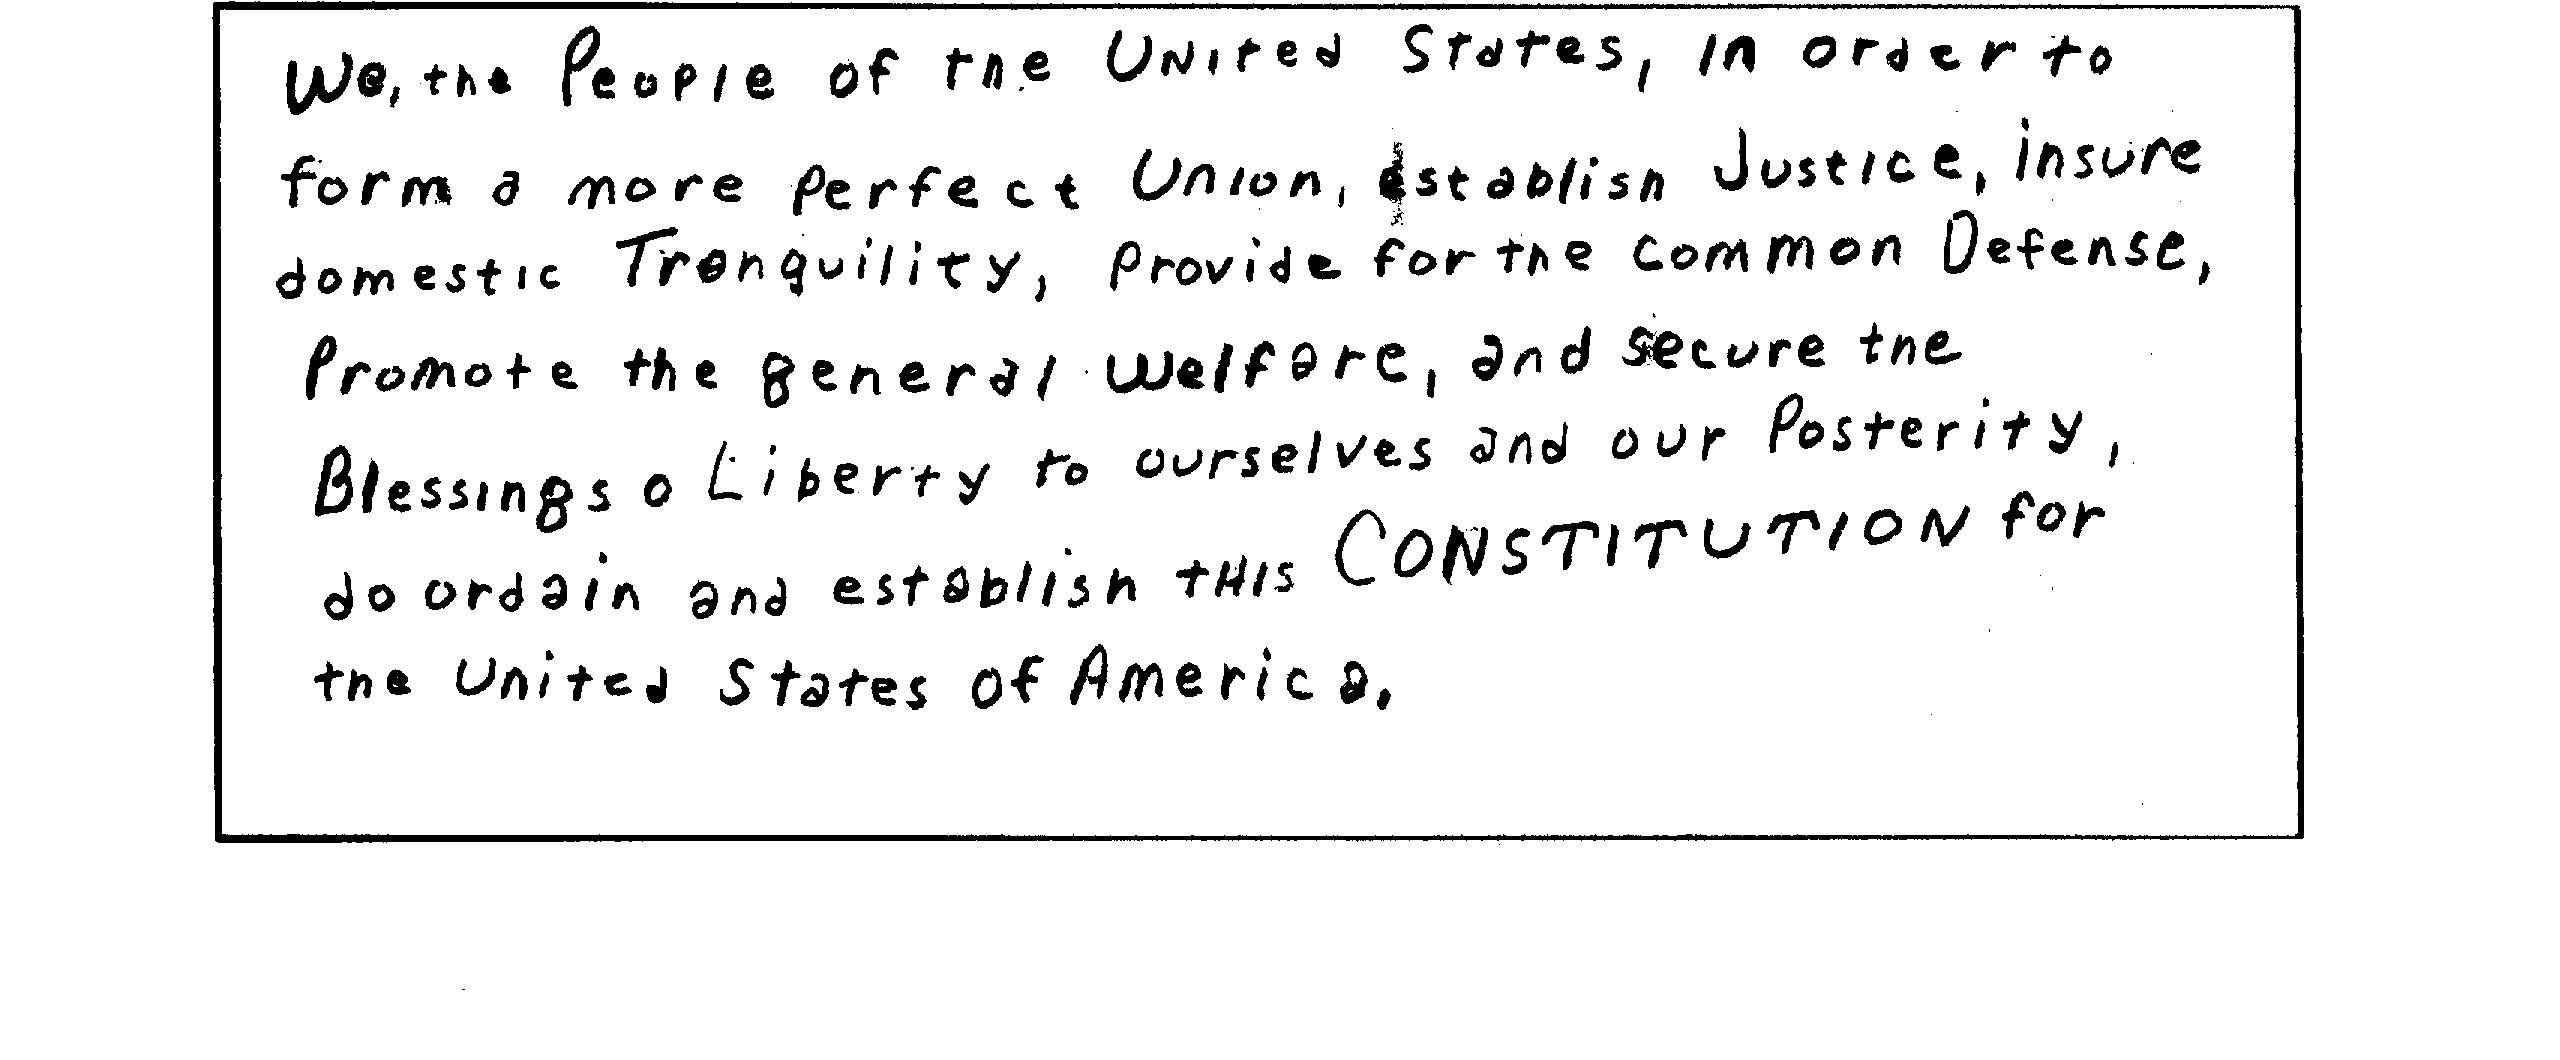 We, the People of the United States, in order to
form a more perfect Union, establish Justice, insure
domestic Tranquility, provide for the common Defense,
Promote the general Welfare, and secure the
Blessings o Liberty to ourselves and our Posterity,
do ordain and establish this CONSTITUTION for
the United States of America.